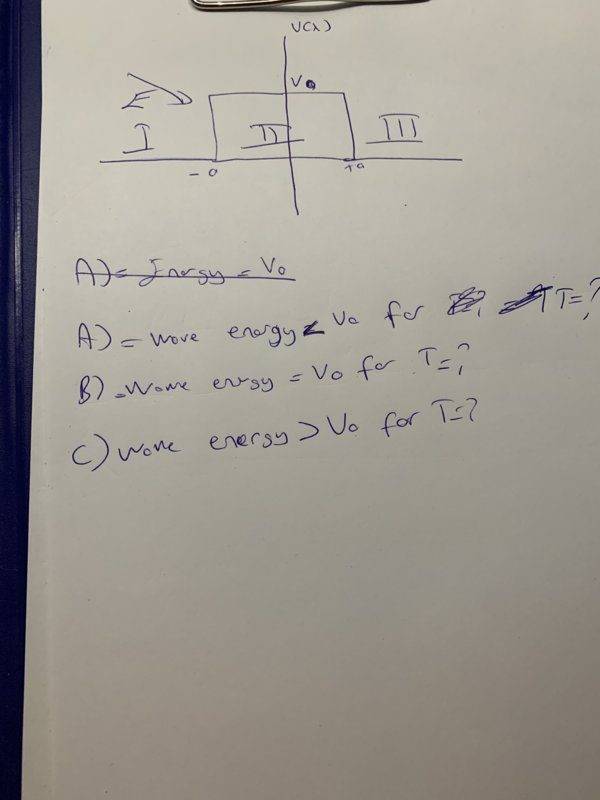 V(x)
V0
E
I
II
III
-a
+a
A)= Energy = V0
A)= wave energy < V0 for T=?
B)=Wave energy = V0 for T=?
C) wave energy > V0 for T=?